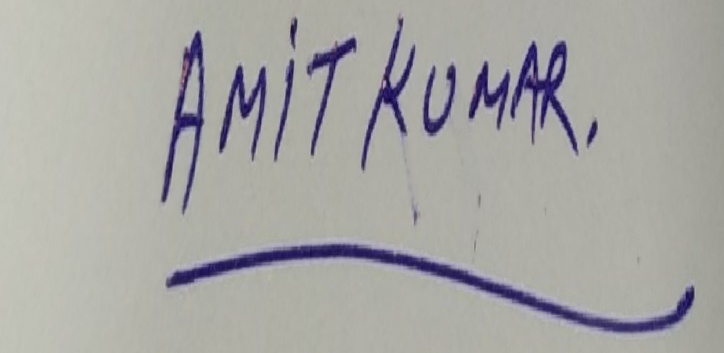 AMIT KUMAR.